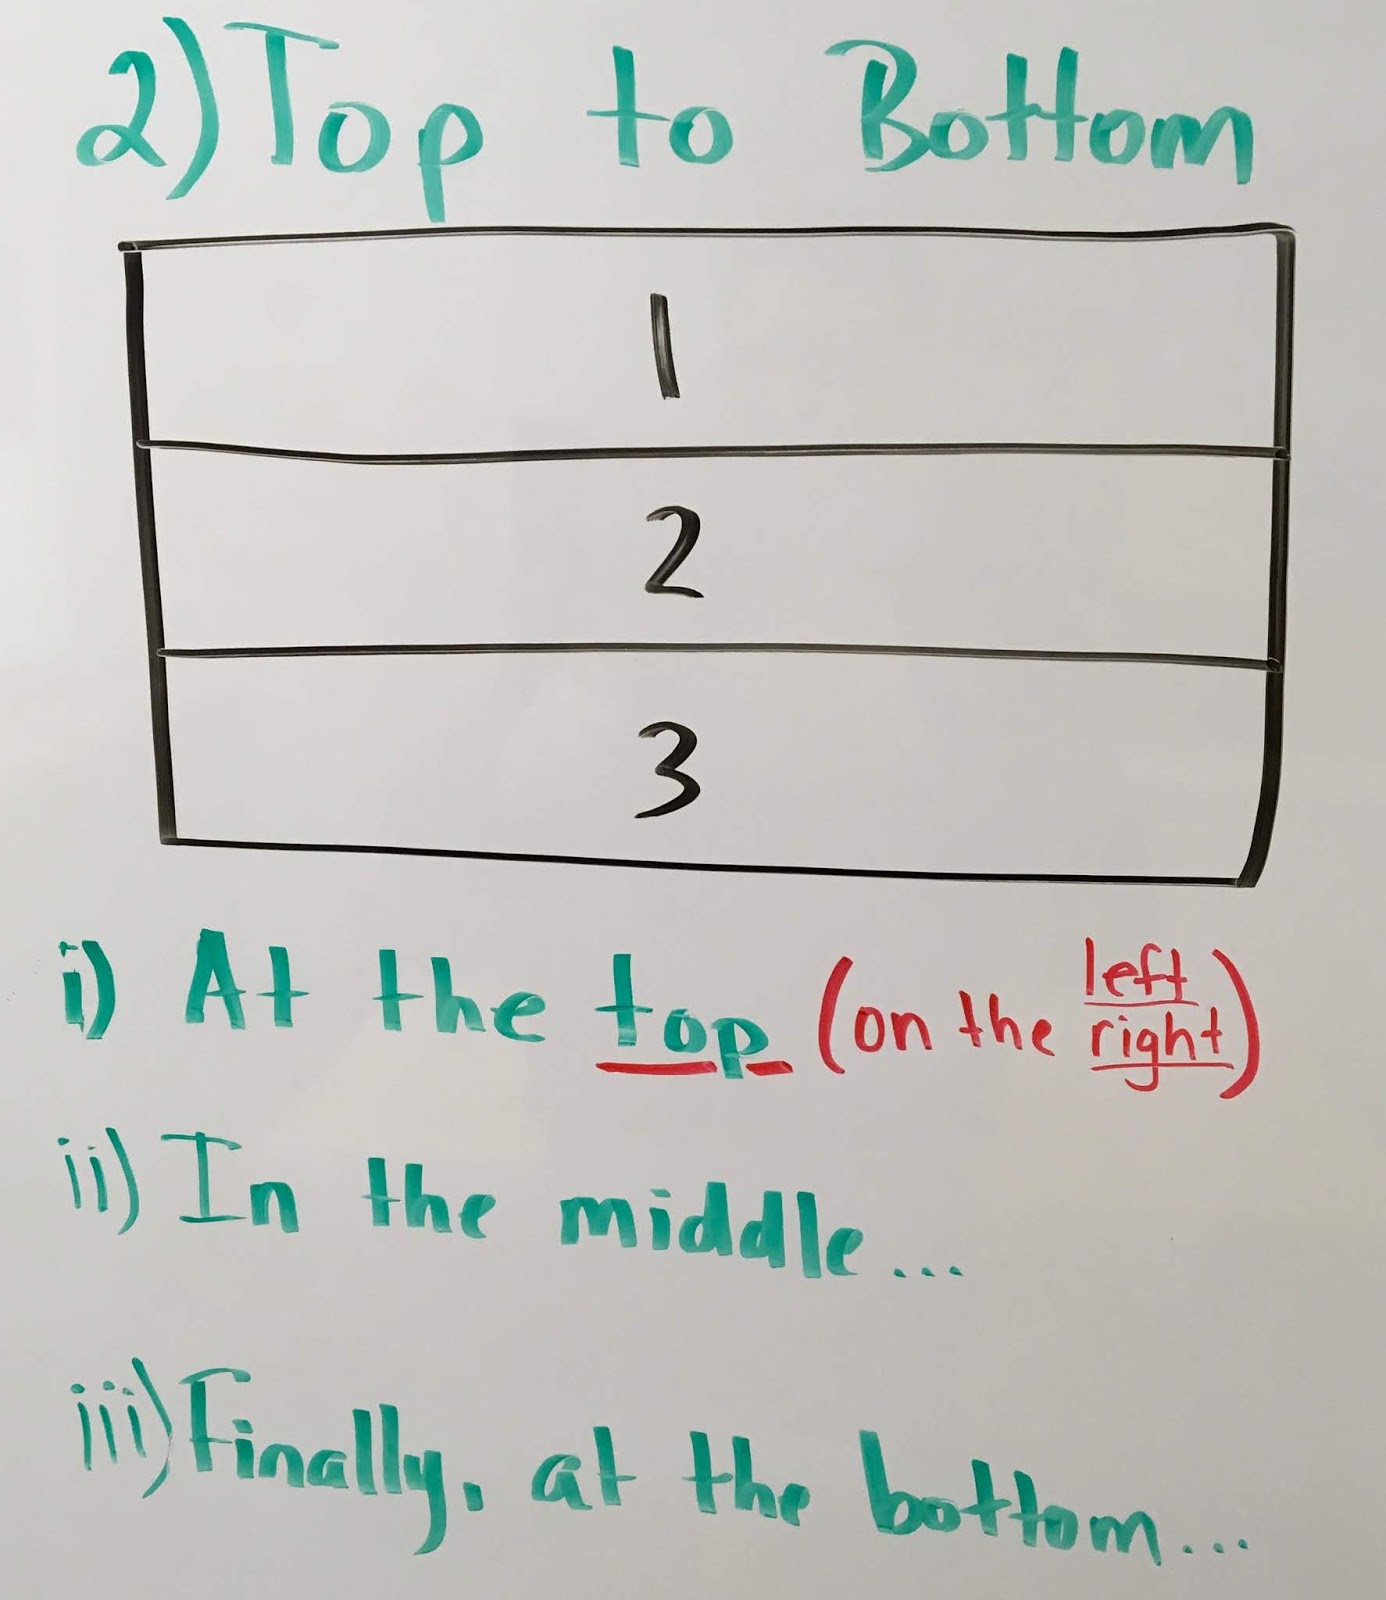 2) Top to Bottom
1
2
3
i) At the top (on the left
right)
ii) In the middle...
iii) Finally, at the bottom...